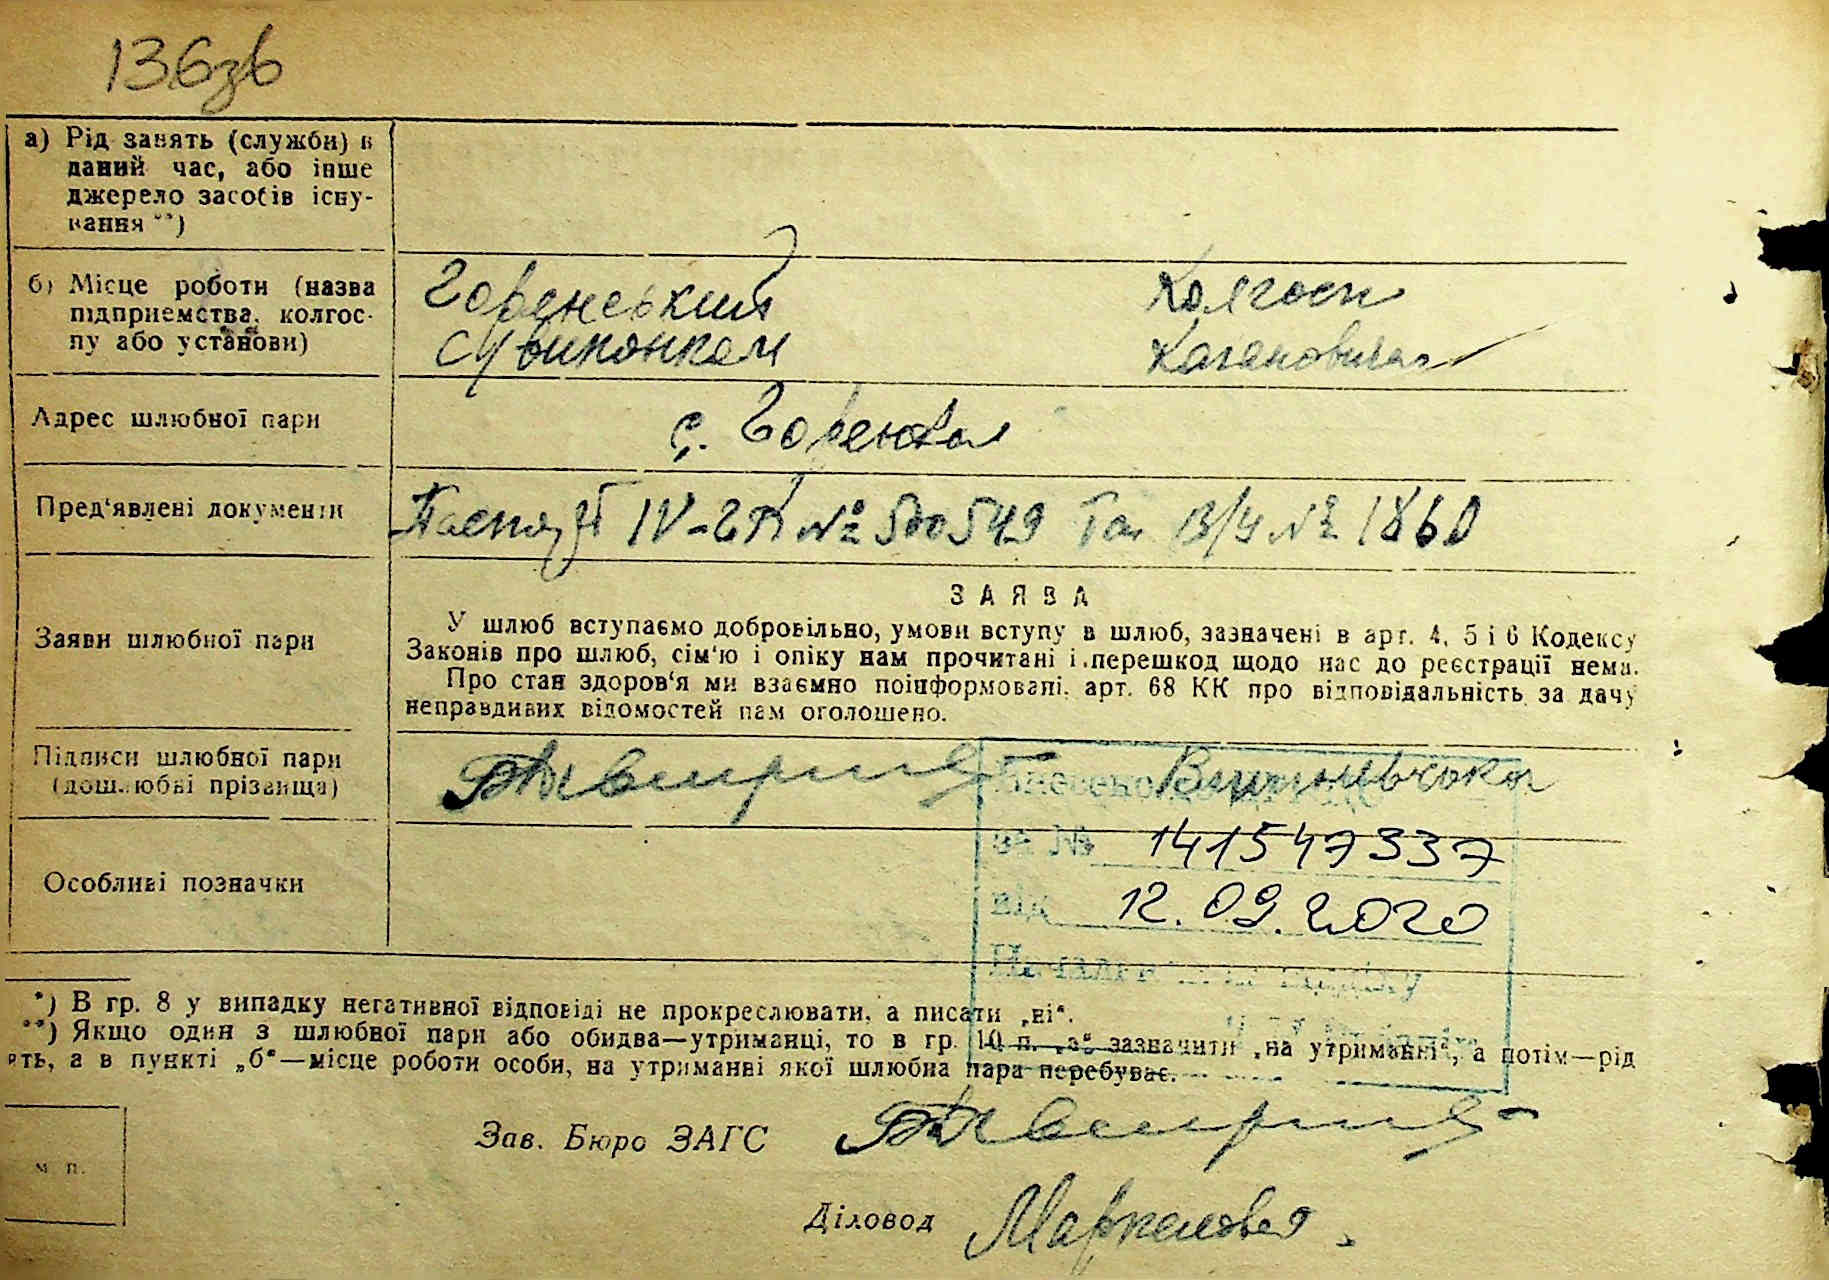 136зв
а) Рід занять (служби) в
даний час, або інше
джерело засобів існу-
вання **)
б) Місце роботи (назва
підприємства, колгос-
пу або установи)
Горенський
с/виконком
Колгосп
Кагановича
Адрес шлюбної пари
с. Горенка
Пред'явлені документи
Паспорт IV-ЕК № 500549 та В/Ч № 1860
Заяви шлюбної пари
ЗАЯВА
У шлюб вступаємо добровільно, умови вступу в шлюб, зазначені в арт. 4, 5 і 6 Кодексу
Законів про шлюб, сім'ю і опіку нам прочитані і перешкод щодо нас до реєстрації нема.
Про стан здоров'я ми взаємно поінформовані, арт. 68 КК про відповідальність за дачу
неправдивих відомостей нам оголошено.
Підписи шлюбної пари
(дошлюбні прізвища)
Внесено до
за № 141547337
від 12.09.2020
Особливі позначки
*) В гр. 8 у випадку негативної відповіді не прокреслювати, а писати „ні“.
**) Якщо один з шлюбної пари або обидва—утриманці, то в гр. 10 п. „а“ зазначити „на утриманні“, а потім—рід
ять, а в пункті „б“—місце роботи особи, на утриманні якої шлюбна пара перебуває.
Зав. Бюро ЗАГС
м. п.
Діловод